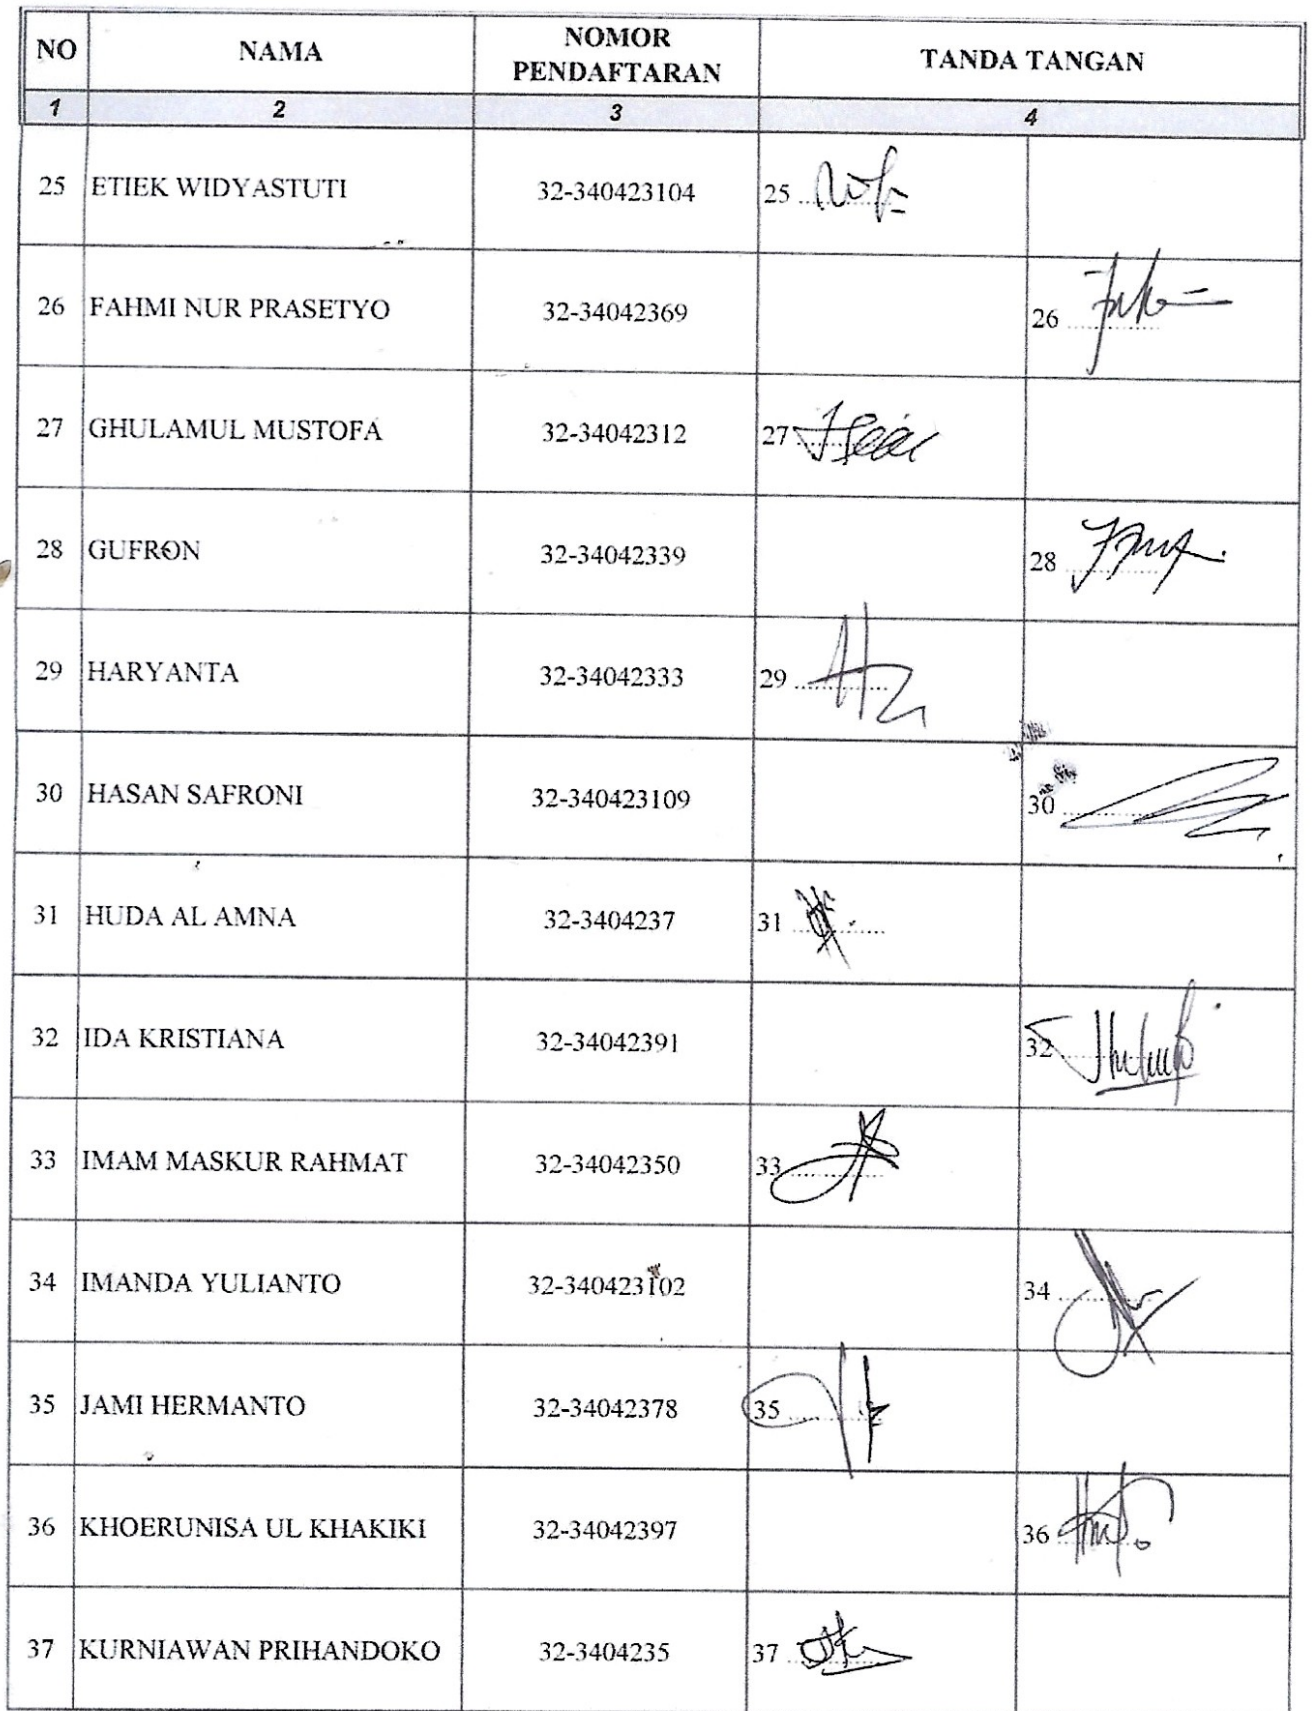 NO NAMA NOMOR PENDAFTARAN TANDA TANGAN
1 2 3 4
25 ETIEK WIDYASTUTI 32-340423104 25 ..........
26 FAHMI NUR PRASETYO 32-34042369 26 ..........
27 GHULAMUL MUSTOFA 32-34042312 27 ..........
28 GUFRON 32-34042339 28 ..........
29 HARYANTA 32-34042333 29 ..........
30 HASAN SAFRONI 32-340423109 30 ..........
31 HUDA AL AMNA 32-3404237 31 ..........
32 IDA KRISTIANA 32-34042391 32 ..........
33 IMAM MASKUR RAHMAT 32-34042350 33 ..........
34 IMANDA YULIANTO 32-340423102 34 ..........
35 JAMI HERMANTO 32-34042378 35 ..........
36 KHOERUNISA UL KHAKIKI 32-34042397 36 ..........
37 KURNIAWAN PRIHANDOKO 32-3404235 37 ..........